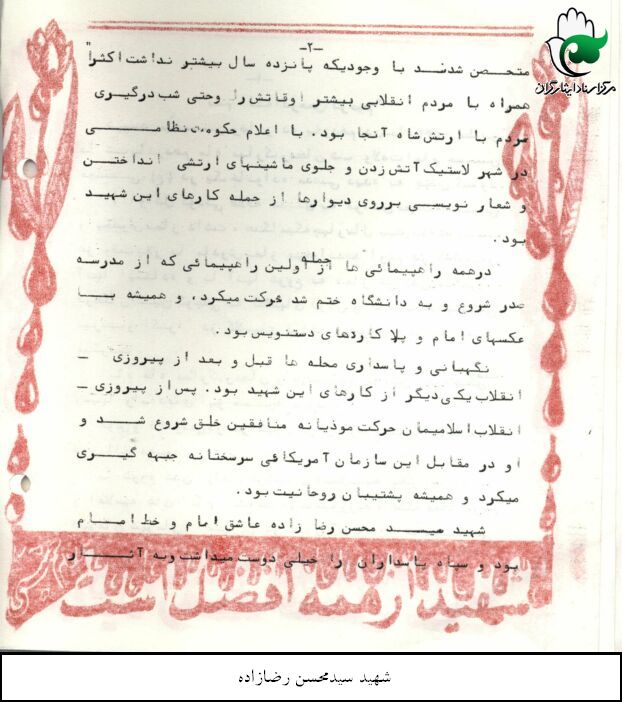 -۲-
متحصن شدند با وجودیکه پانزده سال بیشتر نداشت اکثراً
همراه با مردم انقلابی بیشتر اوقاتش را وحتی شب درگیری
مردم با ارتش شاه آنجا بود. با اعلام حکومت نظامی
در شهر لاستیک آتش زدن و جلوی ماشینهای ارتشی انداختن
و شعار نویسی برروی دیوارها از جمله کارهای این شهید
بود.
درهمه راهپیمائی ها از جمله اولین راهپیمائی که از مدرسه
صدر شروع و به دانشگاه ختم شد شرکت میکرد، و همیشه با
عکسهای امام و پلاکاردهای دستنویس بود.
نگهبانی و پاسداری محله ها قبل و بعد از پیروزی -
انقلاب یکی دیگر از کارهای این شهید بود. پس از پیروزی -
انقلاب اسلامیمان حرکت موذیانه منافقین خلق شروع شد و
او در مقابل این سازمان آمریکائی سرسختانه جبهه گیری
میکرد و همیشه پشتیبان روحانیت بود.
شهید سید محسن رضا زاده عاشق امام و خط امام
بود و سپاه پاسداران را خیلی دوست میداشت وبه آثار
شهید از همه افضل است
مرکز اسناد ایثارگران
شهید سیدمحسن رضازاده